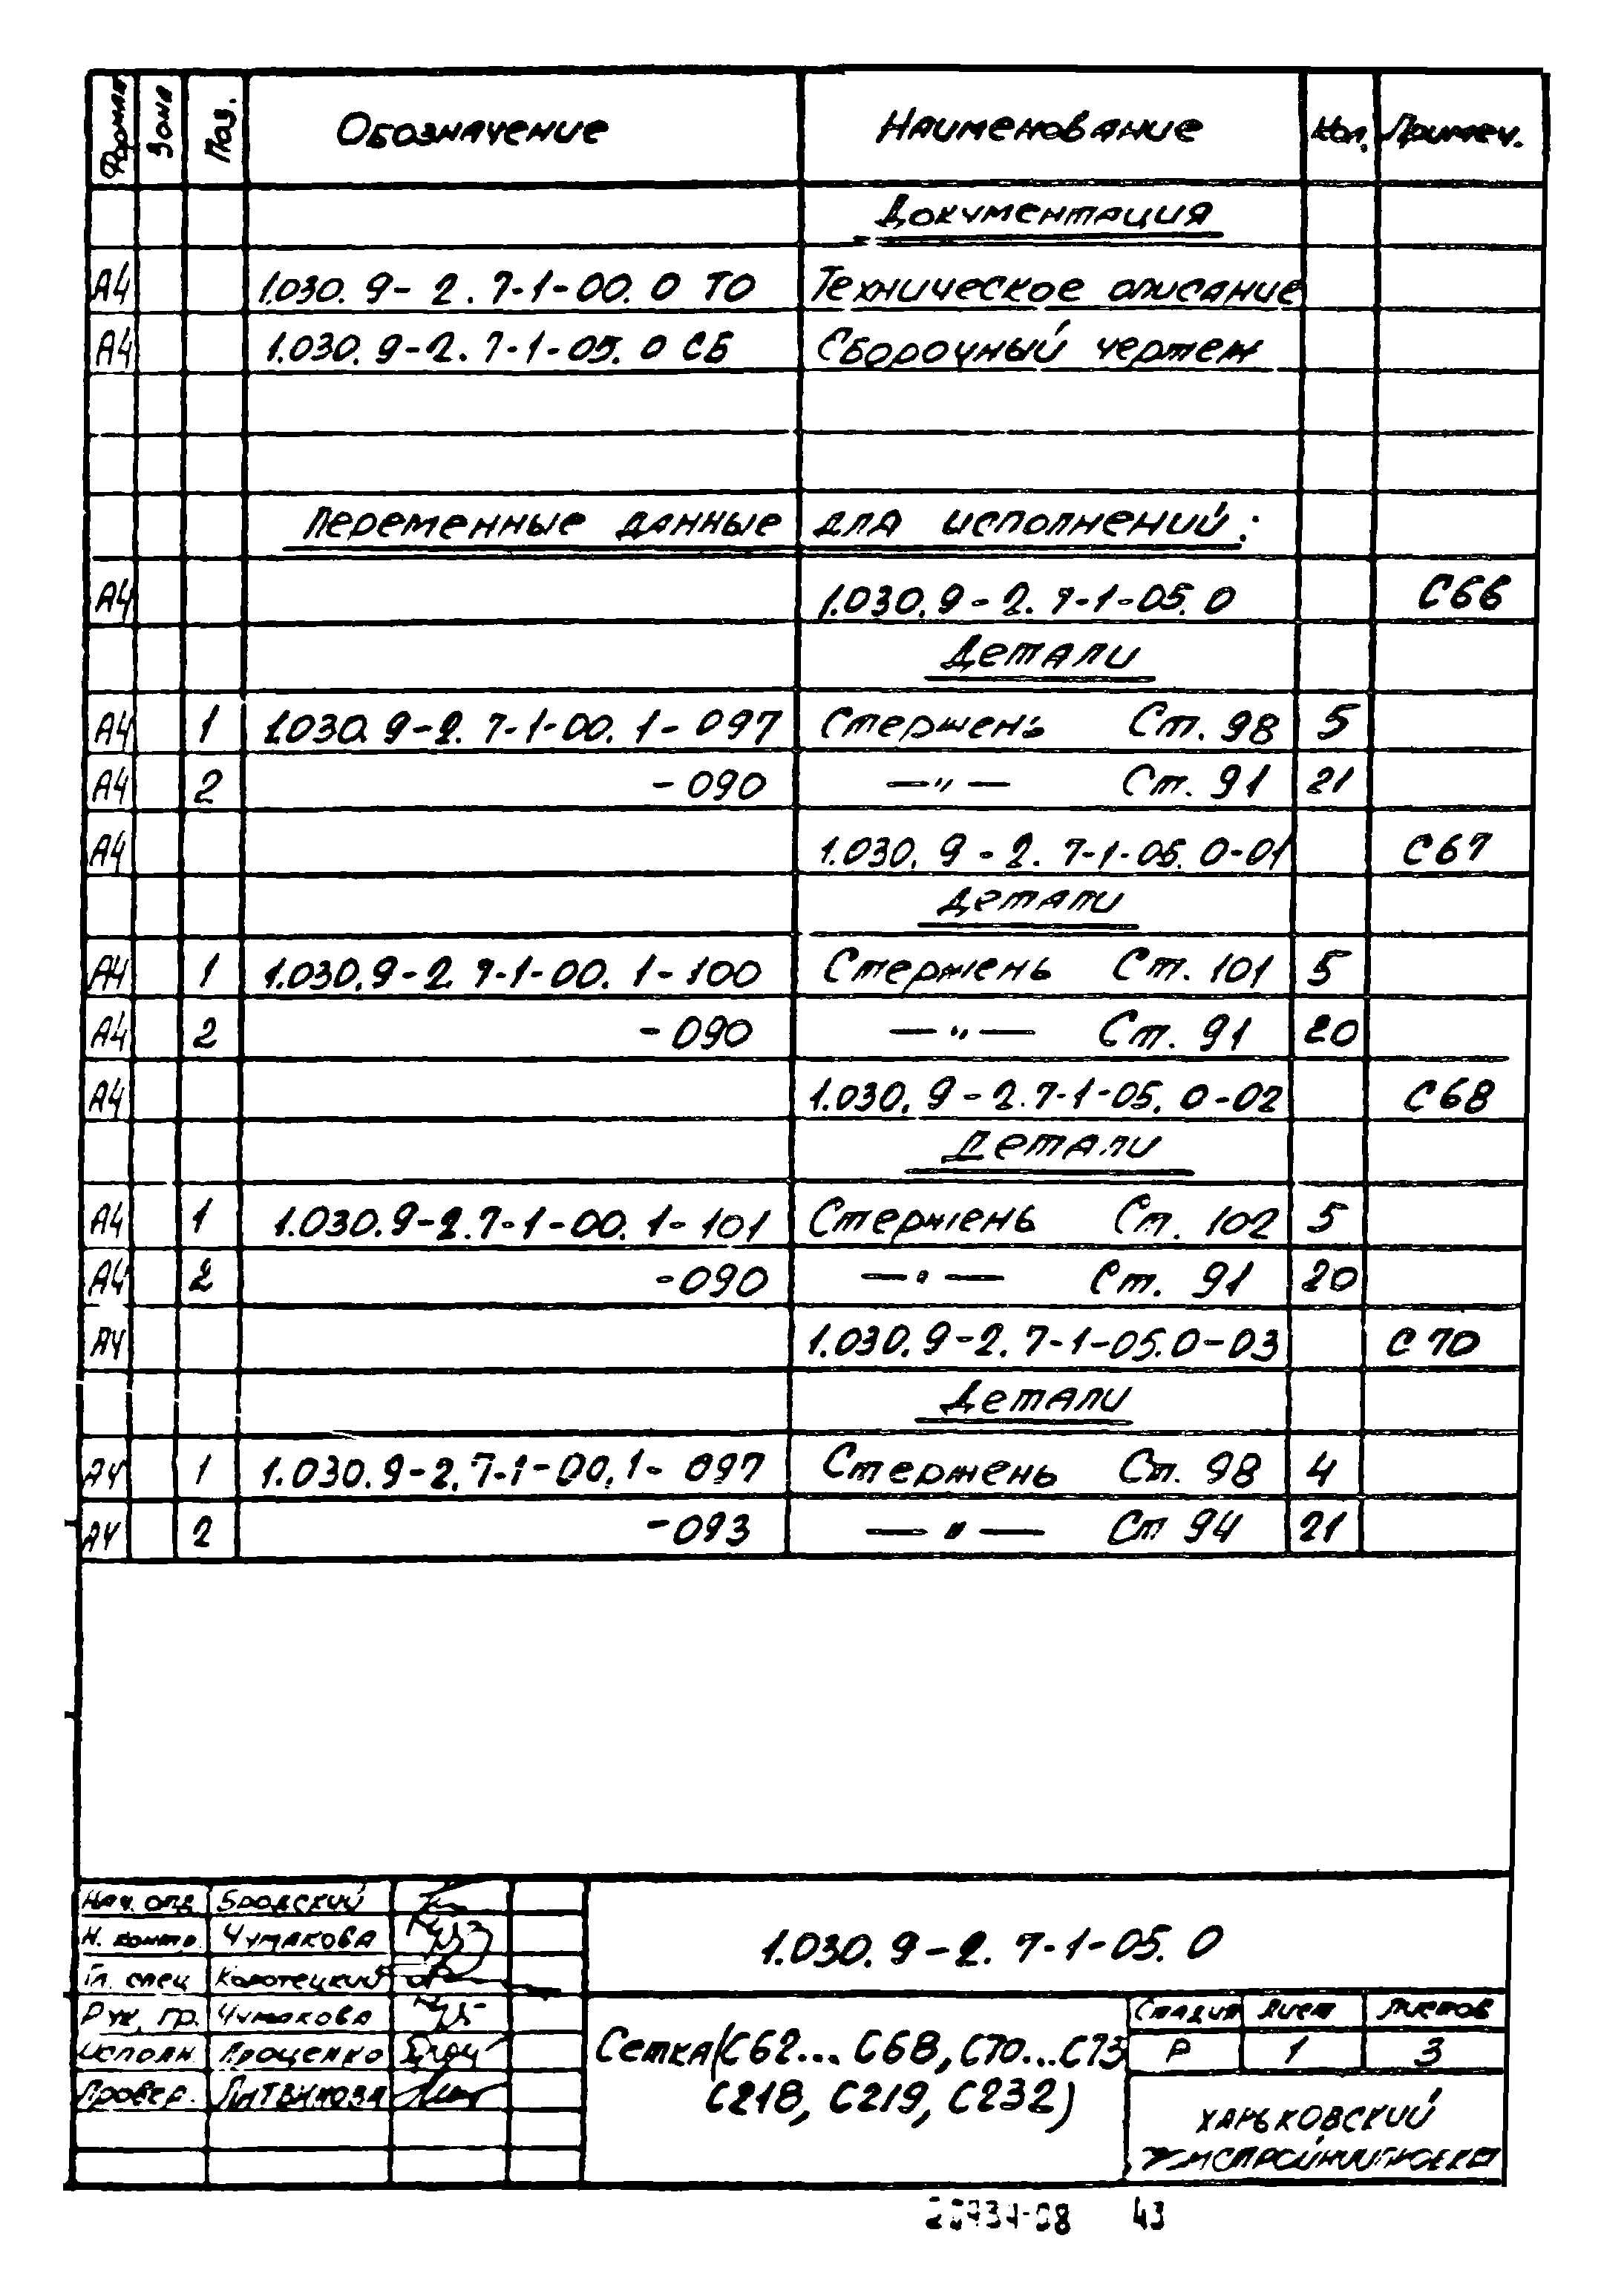 Формат Зона Поз. Обозначение Наименование Кол. Примеч.
Документация
А4 1.030.9-2.7-1-00.0 ТО Техническое описание
А4 1.030.9-2.7-1-05.0 СБ Сборочный чертеж
Переменные данные для исполнений:
А4 1.030.9-2.7-1-05.0 С66
Детали
А4 1 1.030.9-2.7-1-00.1-097 Стержень Ст. 98 5
А4 2 -090 —"— Ст. 91 21
А4 1.030.9-2.7-1-05.0-01 С67
Детали
А4 1 1.030.9-2.7-1-00.1-100 Стержень Ст. 101 5
А4 2 -090 —"— Ст. 91 20
А4 1.030.9-2.7-1-05.0-02 С68
Детали
А4 1 1.030.9-2.7-1-00.1-101 Стержень Ст. 102 5
А4 2 -090 —"— Ст. 91 20
А4 1.030.9-2.7-1-05.0-03 С70
Детали
А4 1 1.030.9-2.7-1-00.1-097 Стержень Ст. 98 4
А4 2 -093 —"— Ст 94 21
Нач. отд Бродский
Н. контр. Чумакова
Гл. спец Коротецкий
Рук. гр. Чумакова
Исполн. Проценко
Провер. Литвинова
1.030.9-2.7-1-05.0
Сетка (С62... С68, С70...С73
С218, С219, С232)
Стадия Лист Листов
Р 1 3
ХАРЬКОВСКИЙ
43